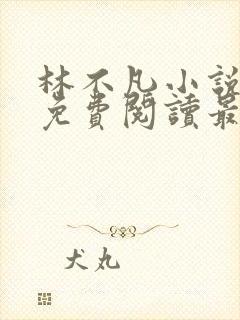 林不凡小說
免費閱讀最
犬丸